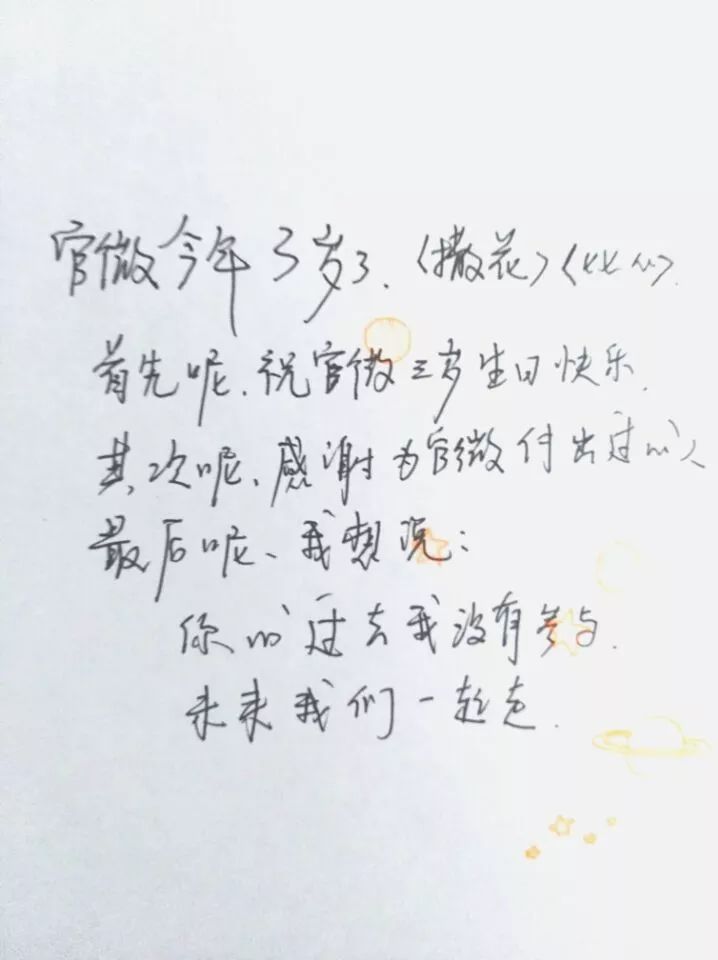 官微今年3岁了.〈撒花〉〈比心〉.
首先呢、祝官微三岁生日快乐.
其次呢、感谢为官微付出过的人
最后呢、我想说：
你的过去我没有参与.
未来我们一起走.